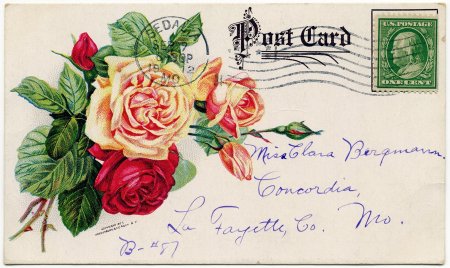 Post Card
U.S. POSTAGE
ONE CENT
Miss Clara Bergmann.
Concordia,
La Fayette, Co. Mo.
B-#87